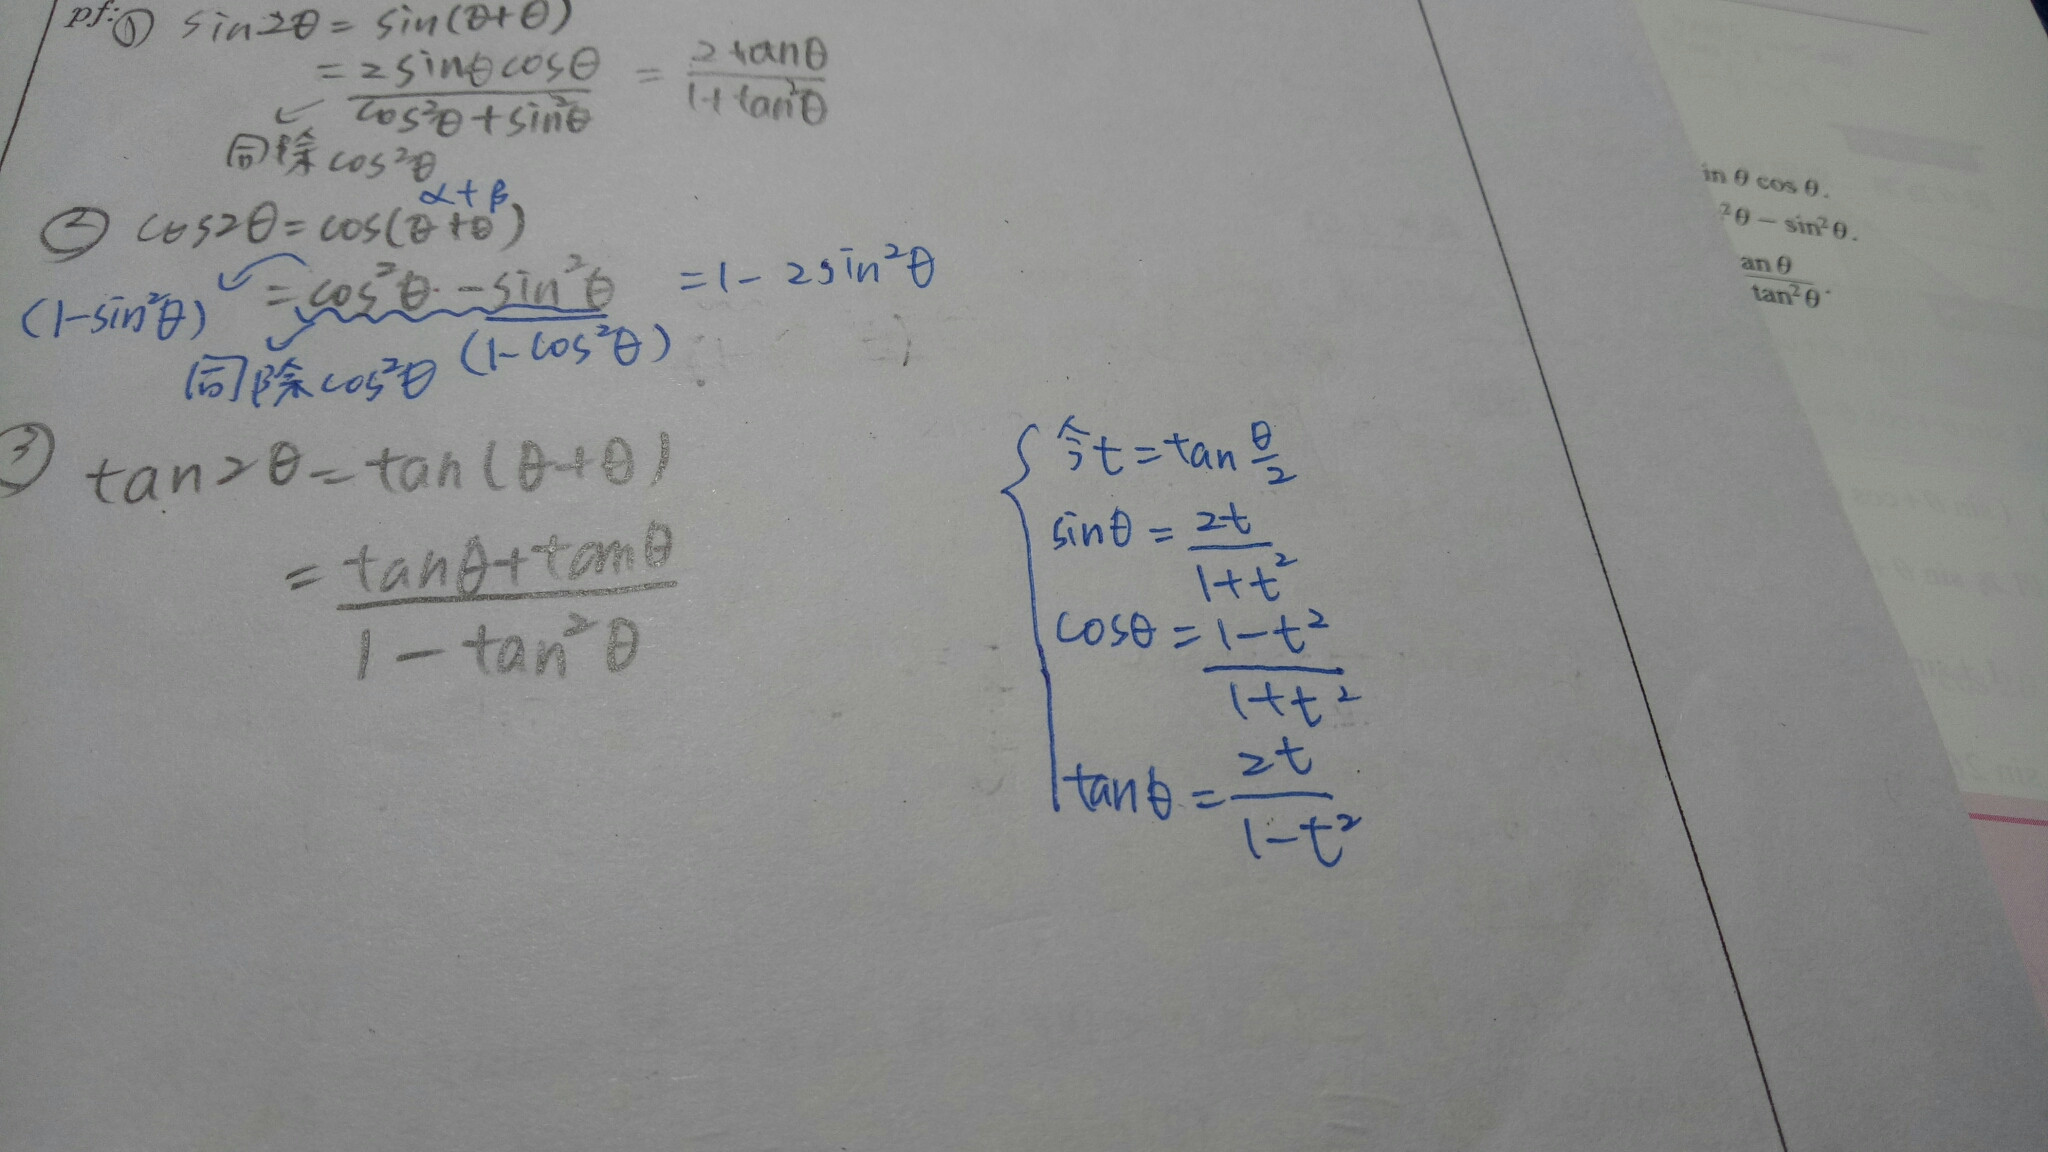 pf:① sin2θ = sin(θ+θ)
= 2sinθcosθ / cos²θ+sin²θ = 2tanθ / 1+tan²θ
同除cos²θ
α+β
② cos2θ=cos(θ+θ)
(1-sin²θ) = cos²θ - sin²θ = 1 - 2sin²θ
同除cos²θ (1-cos²θ)
③ tan2θ = tan(θ+θ)
= tanθ+tanθ / 1 - tan²θ
令t = tan θ/2
sinθ = 2t / 1+t²
cosθ = 1-t² / 1+t²
tanθ = 2t / 1-t²
in θ cos θ.
²θ − sin²θ.
an θ
tan²θ.